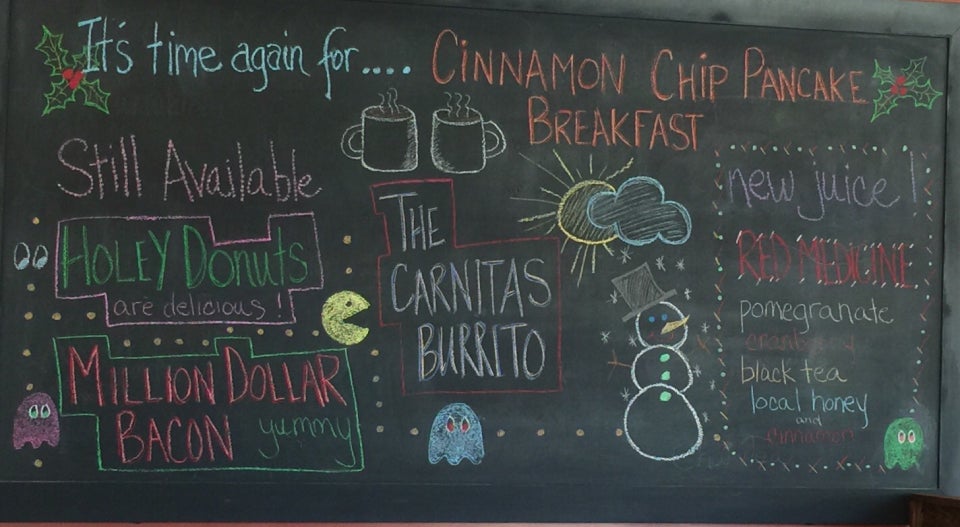 It's time again for.... CINNAMON CHIP PANCAKE
BREAKFAST
Still Available
HOLEY DONUTS
are delicious!
MILLION DOLLAR
BACON yummy
THE
CARNITAS
BURRITO
new juice!
RED MEDICINE
pomegranate
cranberry
black tea
local honey
and
cinnamon